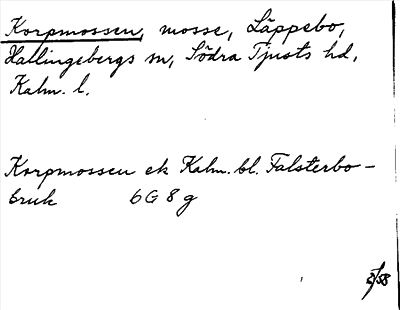 Korpmossen, mosse, Läppebo,
Hallingebergs sn, Södra Tjusts hd,
Kalm. l.
Korpmossen ek Kalm. bl. Falsterbo-
bruk 6G 8g